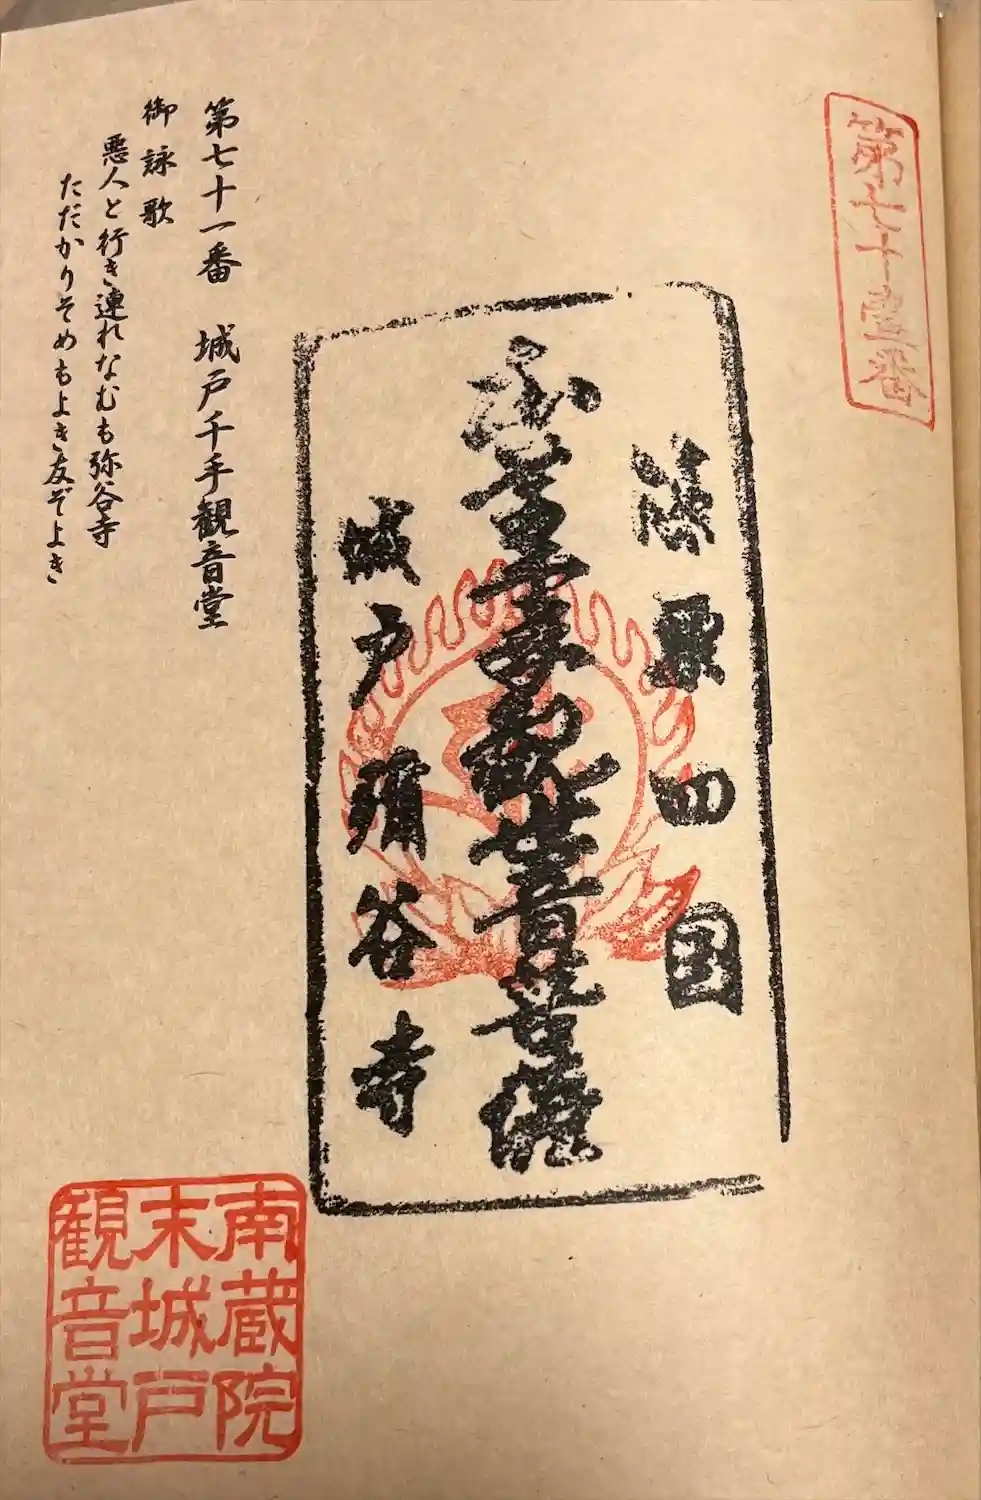 第七十壹番
篠栗四国
本尊千手観世音菩薩
城戸彌谷寺
第七十一番 城戸千手観音堂
御詠歌
悪人と行き連れなむも弥谷寺
ただかりそめもよき友ぞよき
南蔵院
末城戸
観音堂